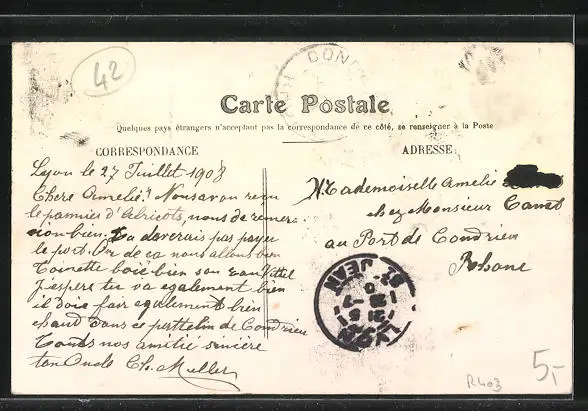 42
COND
Carte Postale
Quelques pays étrangers n'acceptant pas la correspondance de ce côté, se renseigner à la Poste
CORRESPONDANCE
ADRESSE
Lyon le 27 Juillet 1908
Chere Amelie! Nous avon reçu
le pannier d'Abricots, nous de remer
sion bien. Tu daverais pas payer
le port. Or de ca nous allons bien
Toinette boie bien son eau Vittel
J'espere tu va egalement bien
il dois fair egalement bien
chaud dans ce pettelin de Condrieu
Touts nos amitié sincère
ton Oncle Ch. Muller
Mademoiselle Amelie
chez Monsieur Canet
au Port de Condrieu
Rhone
LYON
ST. JEAN
5,-
R403